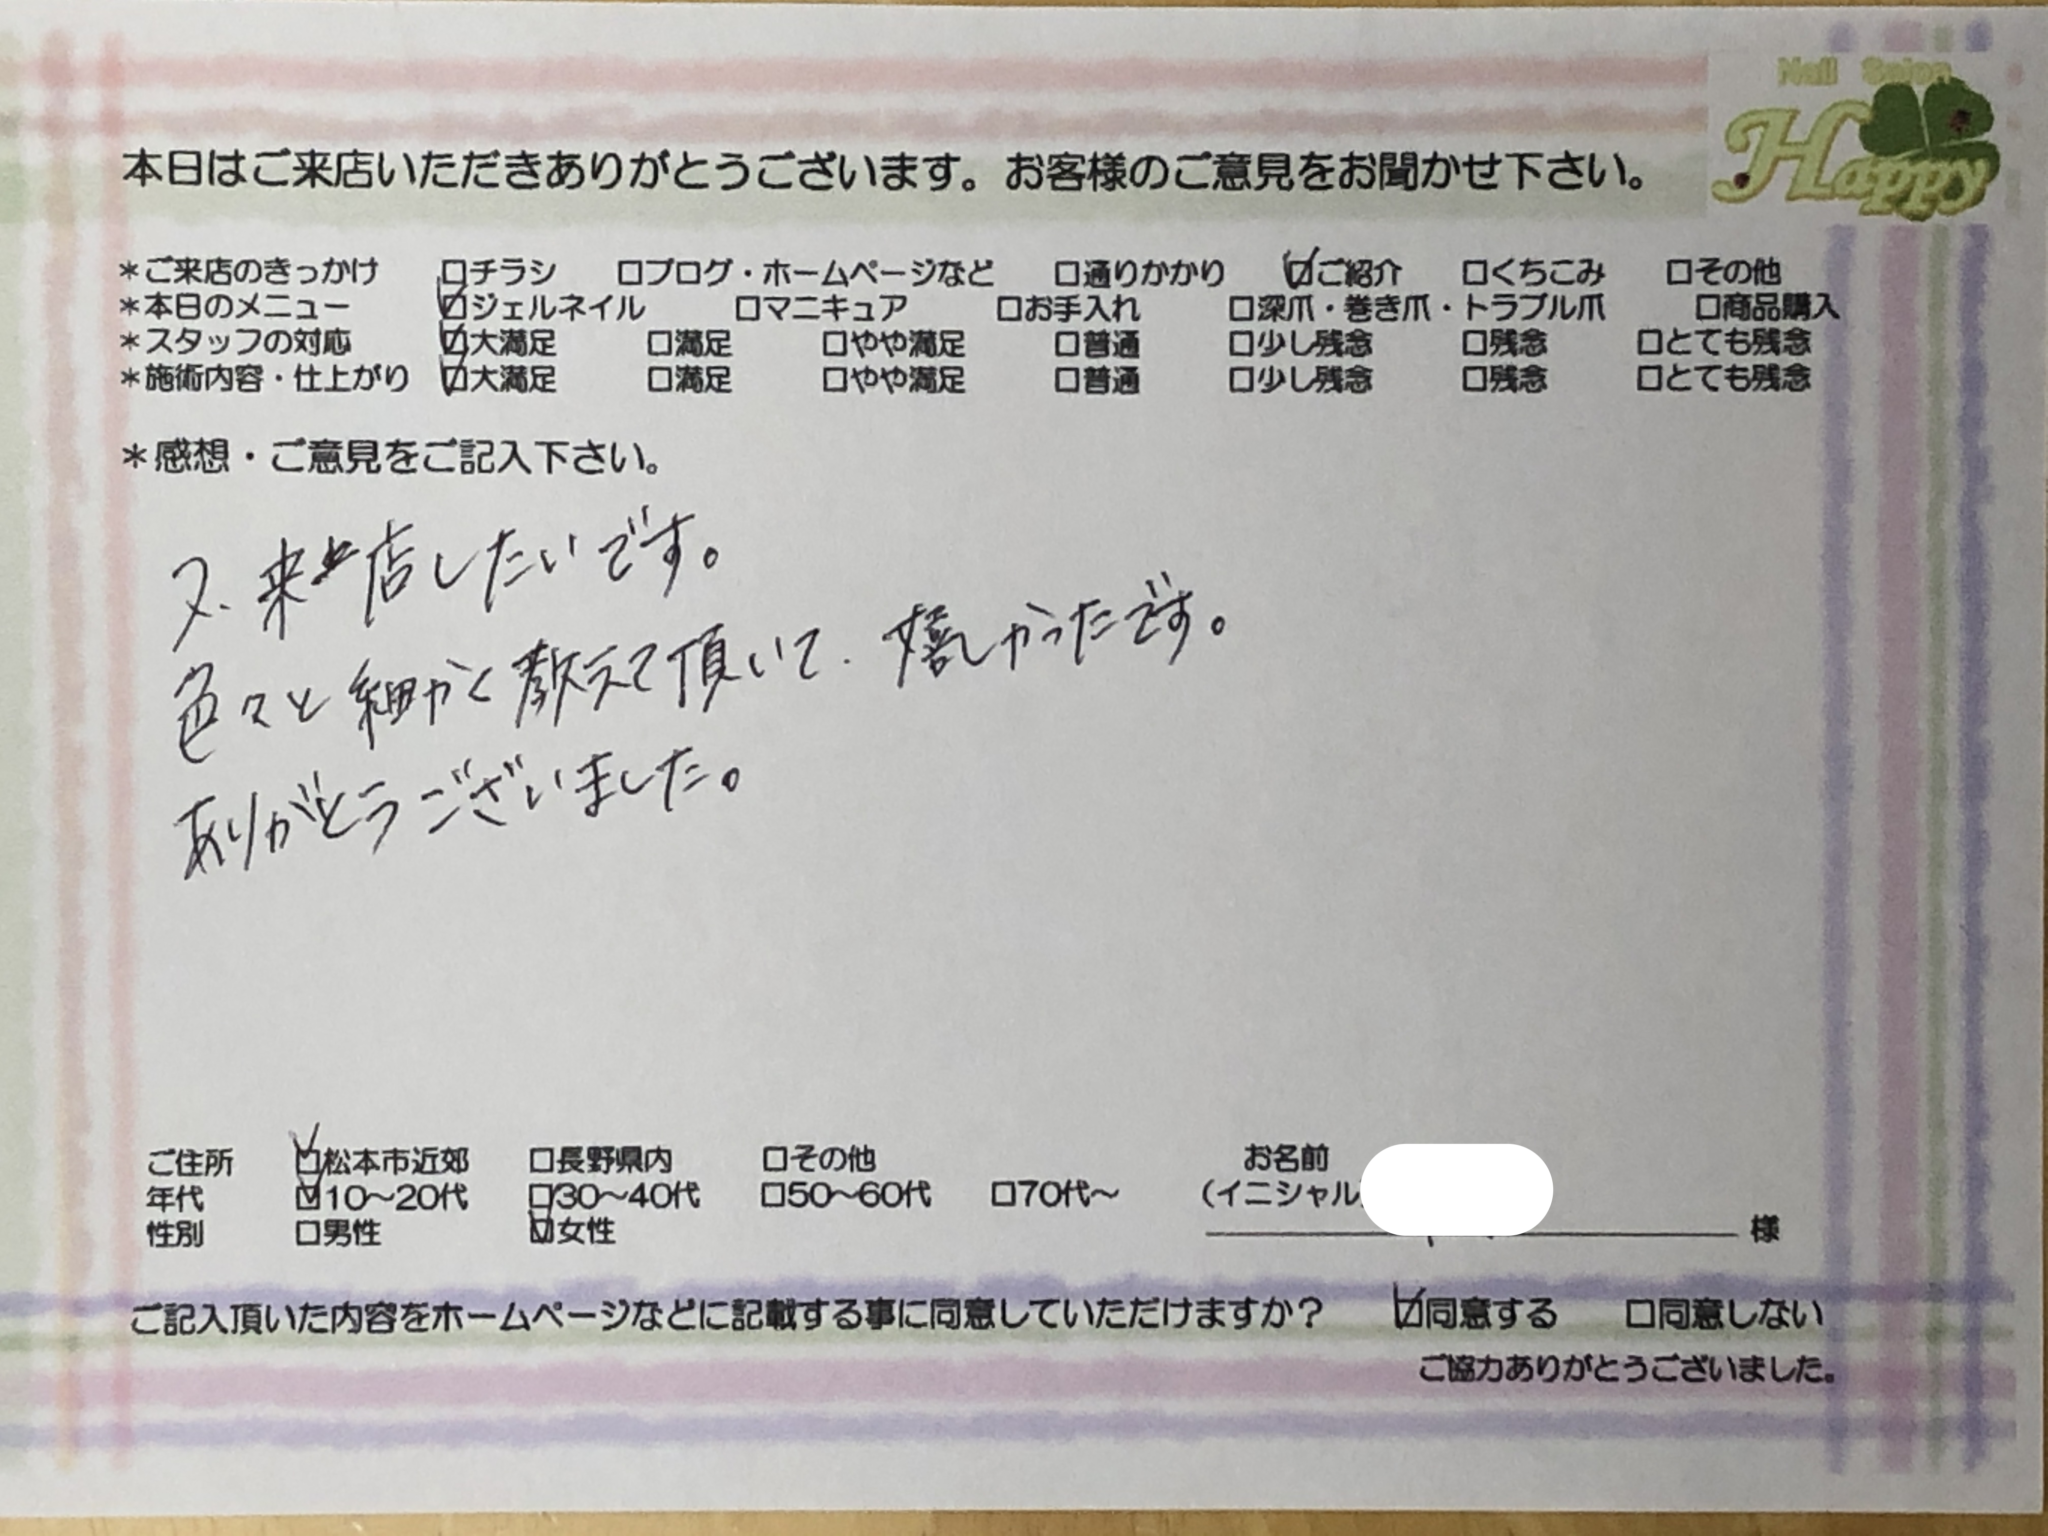 Nail Salon
Happy
本日はご来店いただきありがとうございます。お客様のご意見をお聞かせ下さい。
*ご来店のきっかけ □チラシ □ブログ・ホームページなど □通りかかり ☑ご紹介 □くちこみ □その他
*本日のメニュー ☑ジェルネイル □マニキュア □お手入れ □深爪・巻き爪・トラブル爪 □商品購入
*スタッフの対応 ☑大満足 □満足 □やや満足 □普通 □少し残念 □残念 □とても残念
*施術内容・仕上がり ☑大満足 □満足 □やや満足 □普通 □少し残念 □残念 □とても残念
*感想・ご意見をご記入下さい。
又、来店したいです。
色々と細かく教えて頂いて、嬉しかったです。
ありがとうございました。
ご住所 ☑松本市近郊 □長野県内 □その他 お名前
年代 ☑10～20代 □30～40代 □50～60代 □70代～ (イニシャル
性別 □男性 ☑女性 様
ご記入頂いた内容をホームページなどに記載する事に同意していただけますか? ☑同意する □同意しない
ご協力ありがとうございました。